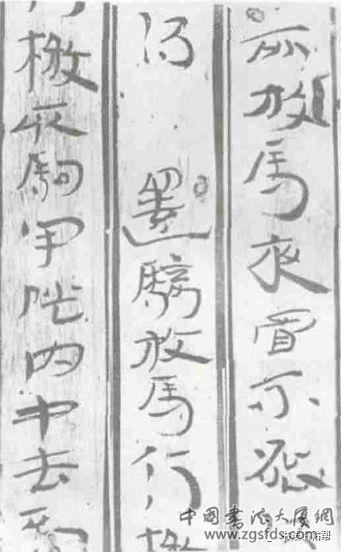 所放馬夜冒不能
得 還騎放馬行檄
檄取駒牢隧內中去到
中国书法大厦网
www.zgsfds.com